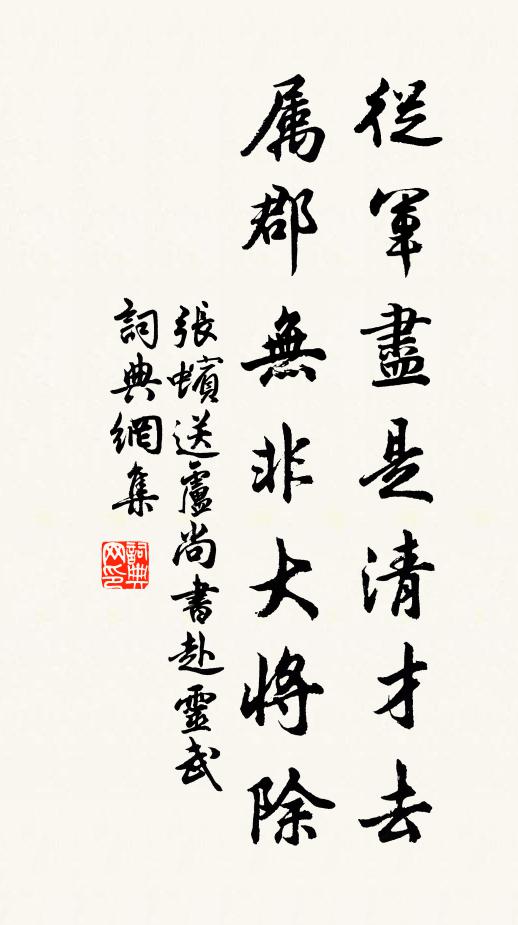 從軍盡是清才去
属郡無非大將除
張蠙送盧尚書赴靈武
詞典網集
詞典网印